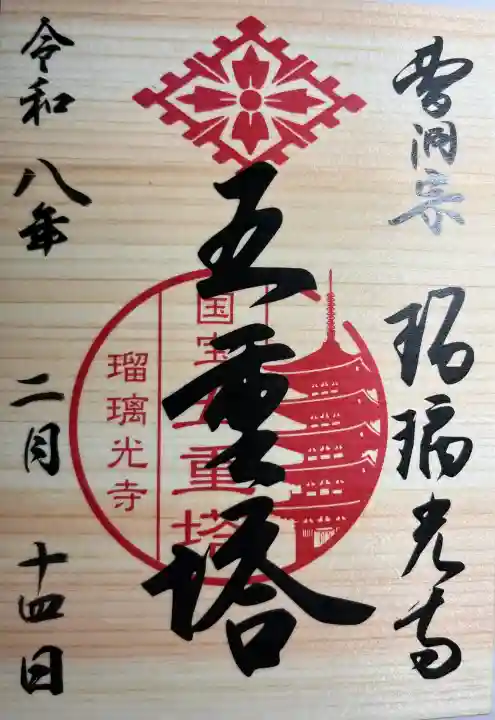 曹洞宗 瑠璃光寺
五重塔
国宝五重塔
瑠璃光寺
令和八年 二月 十四日